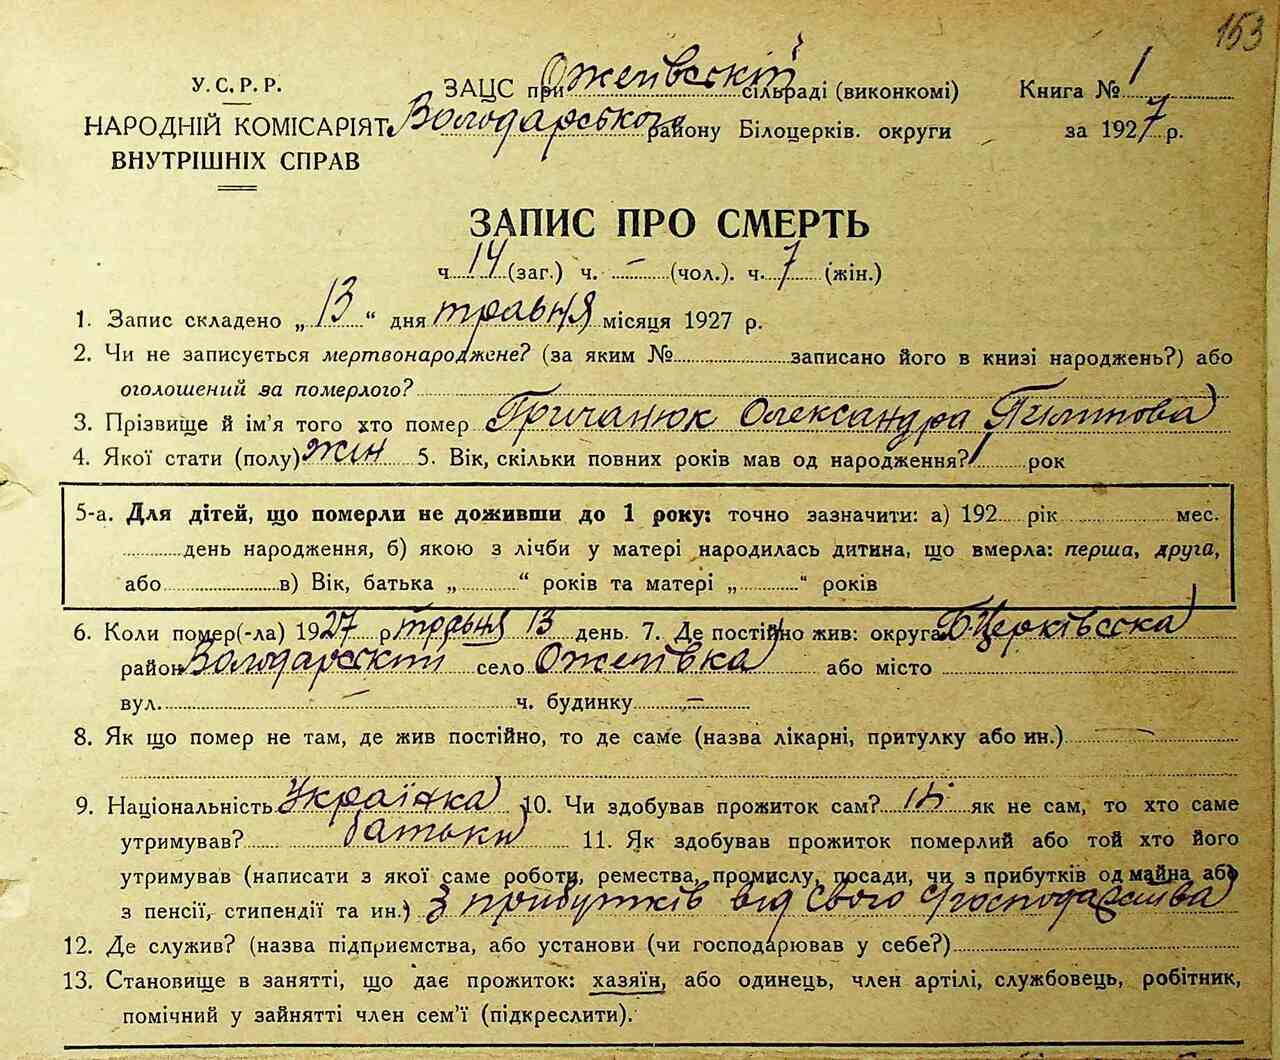 153
У.С.Р.Р.
НАРОДНІЙ КОМІСАРІЯТ
ВНУТРІШНІХ СПРАВ
ЗАЦС при Ожеївській сільраді (виконкомі)
Володарського району Білоцерків. округи
Книга № 1
за 1927 р.
ЗАПИС ПРО СМЕРТЬ
ч. 14 (заг.) ч. – (чол.). ч. 7 (жін.)
1. Запис складено „13“ дня травня місяця 1927 р.
2. Чи не записується мертвонароджене? (за яким № записано його в книзі народжень?) або
оголошений за померлого?
3. Прізвище й ім'я того хто помер Гричанюк Олександра Пилипова
4. Якої стати (полу) жін 5. Вік, скільки повних років мав од народження? 1 рок
5-а. Для дітей, що померли не доживши до 1 року: точно зазначити: а) 192 рік мес.
день народження, б) якою з лічби у матері народилась дитина, що вмерла: перша, друга,
або в) Вік, батька „ “ років та матері „ “ років
6. Коли помер(-ла) 1927 р. травня 13 день. 7. Де постійно жив: округа Б-Церківська
район Володарський село Ожегівка або місто
вул. – ч. будинку –
8. Як що помер не там, де жив постійно, то де саме (назва лікарні, притулку або ин.) –
9. Національність Українка 10. Чи здобував прожиток сам? ні як не сам, то хто саме
утримував? батьки 11. Як здобував прожиток померлий або той хто його
утримував (написати з якої саме роботи, ремества, промислу, посади, чи з прибутків од майна або
з пенсії, стипендії та ин.) З прибутків від свого господарства
12. Де служив? (назва підприємства, або установи (чи господарював у себе?)
13. Становище в занятті, що дає прожиток: хазяїн, або одинець, член артілі, службовець, робітник,
помічний у зайнятті член сем'ї (підкреслити).